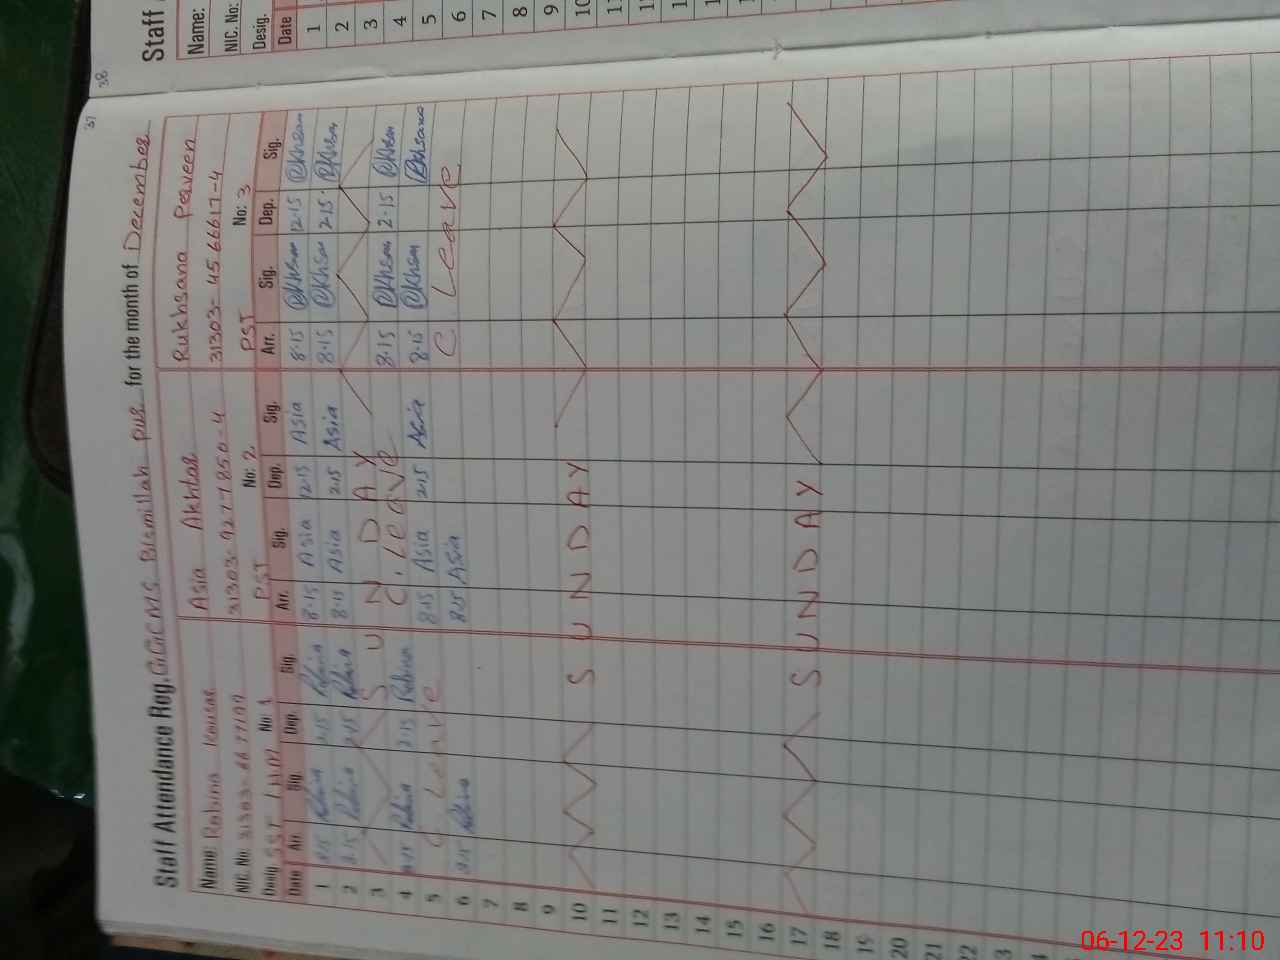 38
Staff
Name:
NIC. No:
Desig.
Date
1
2
3
4
5
6
7
8
9
10
37
Staff Attendance Reg. G.G.C.M.S Bismillah pur for the month of December
Name: Robina Kousar Asia Akhtar Rukhsana Perveen
NIC. No: 31303- 31303-927-1850-4 31303-4566617-4
Desig. SST / HM No: 1 PST No: 2 PST No: 3
Date Arr. Sig. Dep. Sig. Arr. Sig. Dep. Sig. Arr. Sig. Dep. Sig.
1 8.15 Robina 12.15 Robina 8.15 Asia 12.15 Asia 8.15 Rkhsan 12.15 Rkhsan
2 8.15 Robina 2.15 Robina 8.15 Asia 2.15 Asia 8.15 Rkhsan 2.15 Rkhsan
3 SUNDAY
4 8.15 Robina 2.15 Robina C. Leave 8.15 Rkhsan 2.15 Rkhsan
5 C Leave 8.15 Asia 2.15 Asia 8.15 Rkhsan Rkhsana
6 8.15 Robina 8.15 Asia C Leave
7
8
9
10 SUNDAY
11
12
13
14
15
16
17 SUNDAY
18
19
20
21
22
06-12-23 11:10